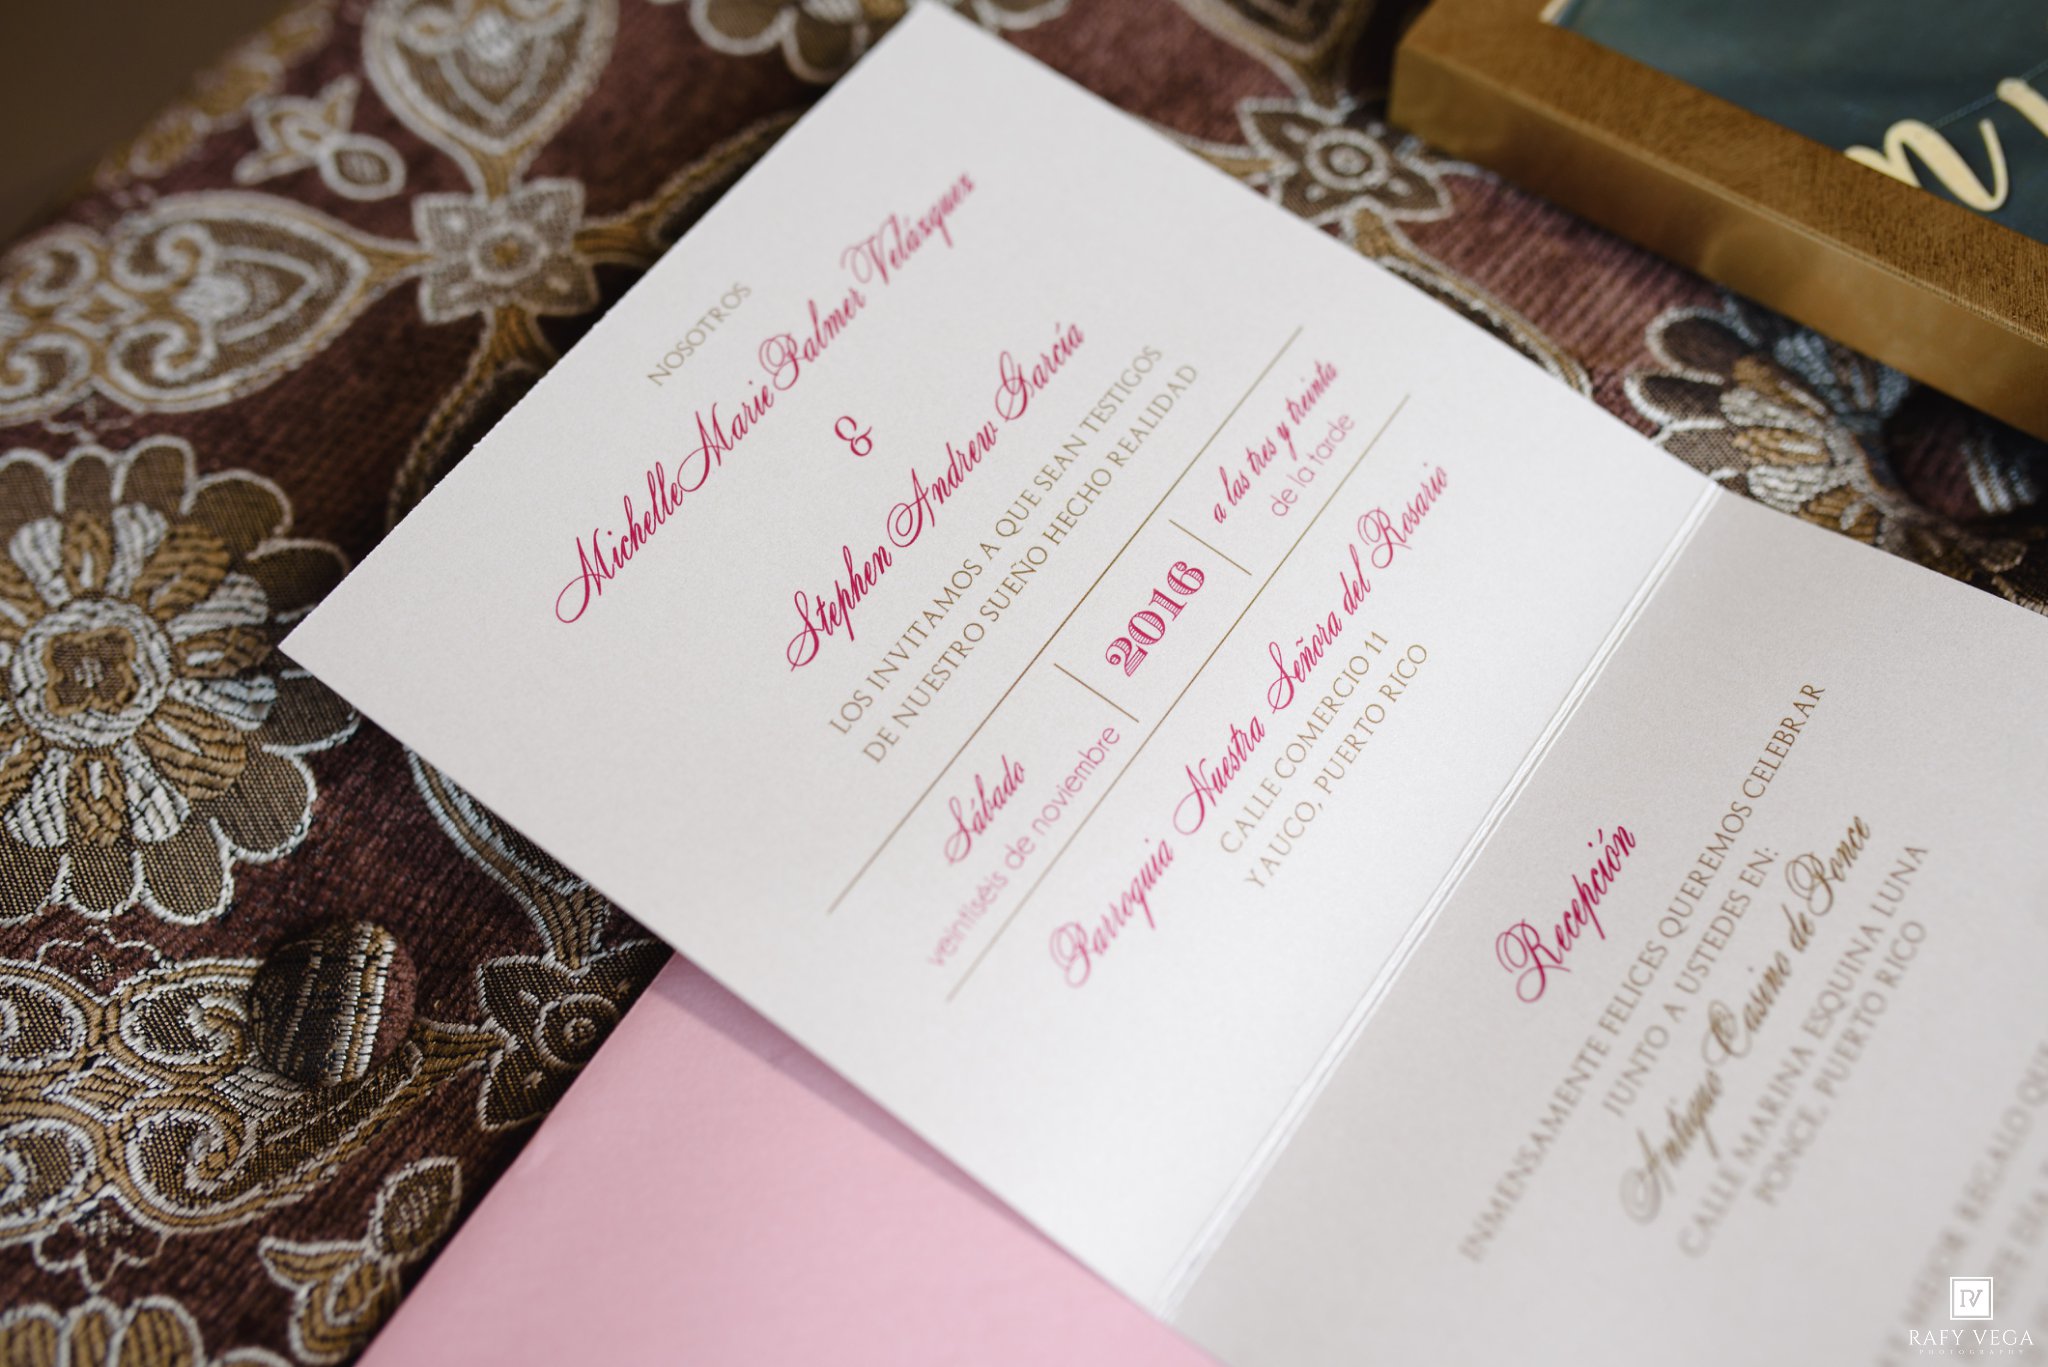 NOSOTROS
Michelle Marie Palmer Velázquez
&
Stephen Andrew García
LOS INVITAMOS A QUE SEAN TESTIGOS
DE NUESTRO SUEÑO HECHO REALIDAD
Sábado
veintiséis de noviembre
2016
a las tres y treinta
de la tarde
Parroquia Nuestra Señora del Rosario
CALLE COMERCIO 11
YAUCO, PUERTO RICO
Recepción
INMENSAMENTE FELICES QUEREMOS CELEBRAR
JUNTO A USTEDES EN:
Antiguo Casino de Ponce
CALLE MARINA ESQUINA LUNA
PONCE, PUERTO RICO
MEJOR REGALO
RV
RAFY VEGA
PHOTOGRAPHY